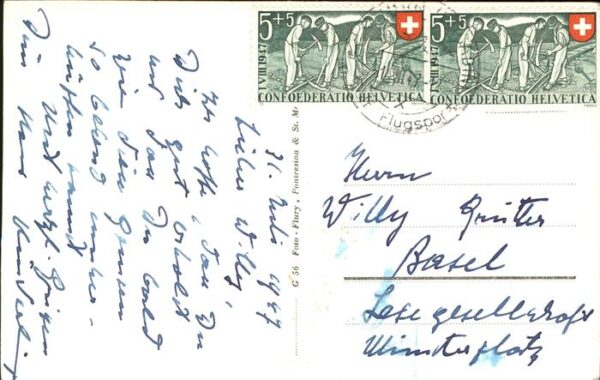 31. Juli 1947
Lieber Willy,
Ich hoffe, dass Du
Dich gut erholst
und dass Du bald
wie diese Gemsen
so
kannst
Und herzl. Grüsse
Dein Hans
G 56 Foto-Flury, Pontresina & St. Mo
5+5
1.VIII.1947
CONFOEDERATIO HELVETICA
5+5
1.VIII.1947
CONFOEDERATIO HELVETICA
Flugspor
Herrn
Willy
Basel
Lesegesellschaft
Münsterplatz